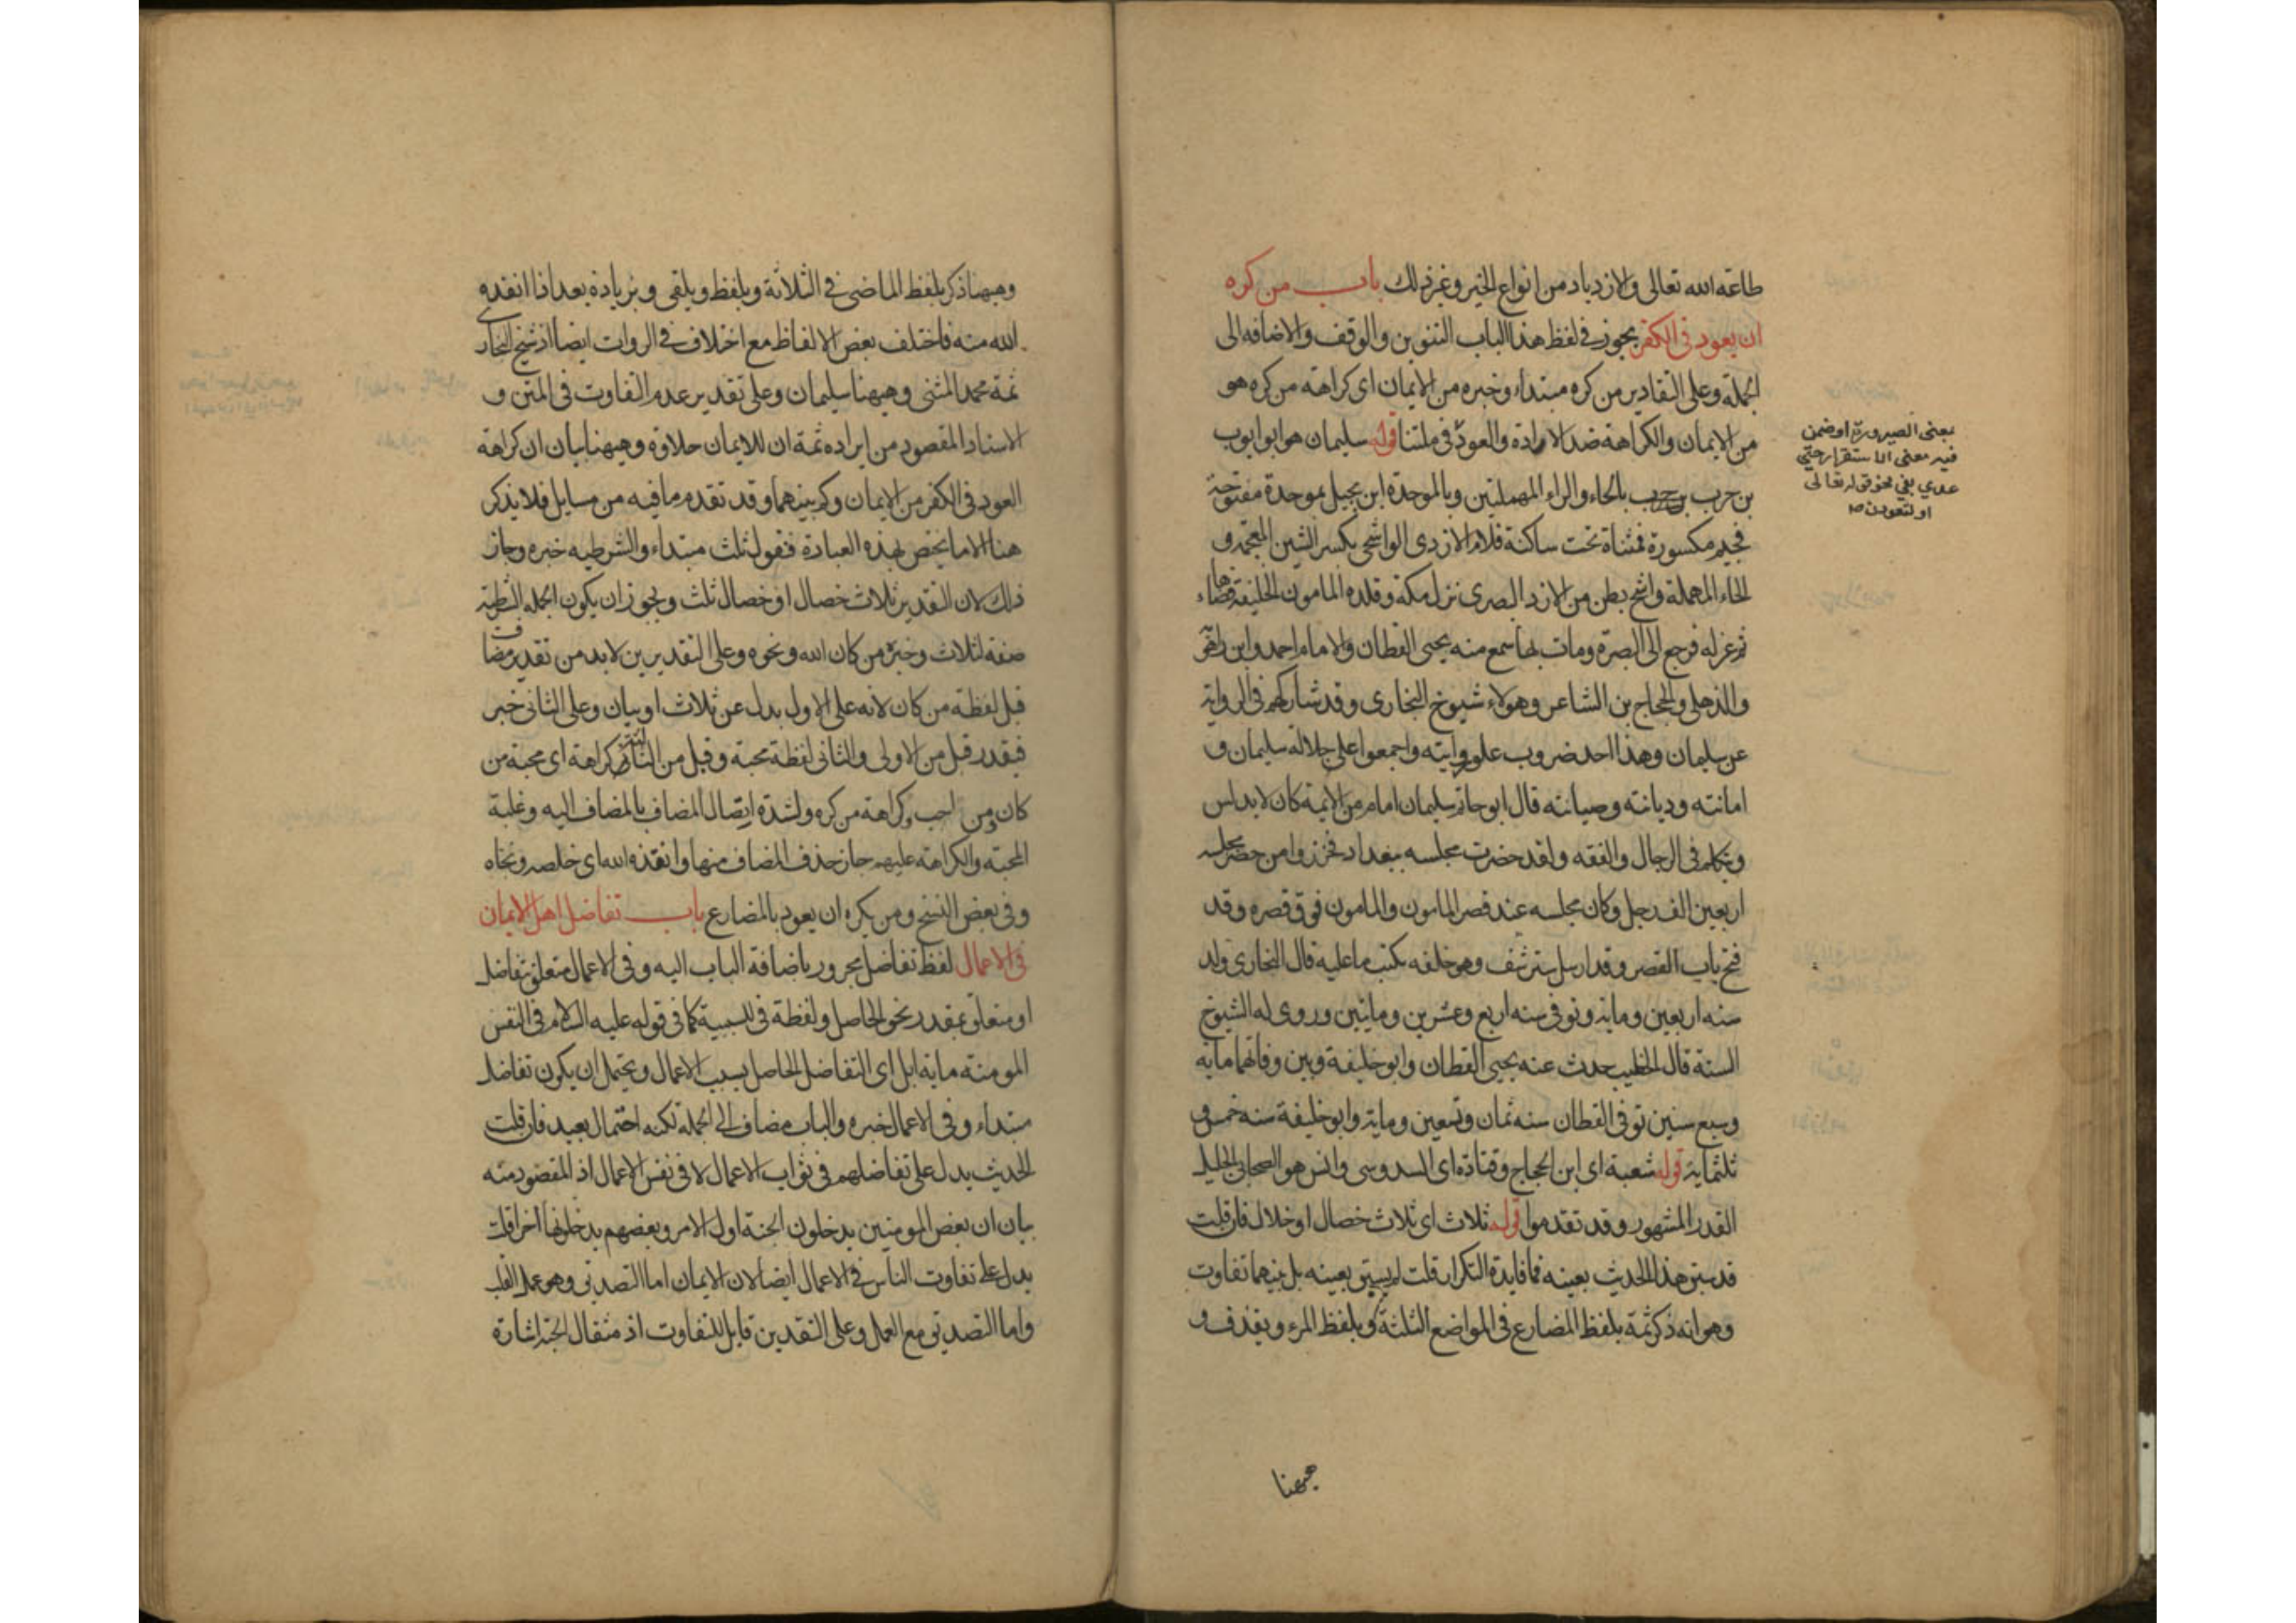 طاعة الله تعالى والازدياد من انواع الخير وغير ذلك باب من كره
ان يعود فى الكفر يجوز فى لفظ هذا الباب التنوين والوقف والاضافه الى
الجملة وعلى التقادير من كره مبتداء وخبره من الايمان اى كراهة من كره هو
من الايمان والكراهة ضد الارادة والعود فى ملتنا قوله سليمان هو ابو ايوب
بن حرب بالحاء والراء المهملتين وبالموحدة ابن بجيل بموحدة مفتوحة
فجيم مكسورة فمثناة تحت ساكنة فلام الازدى الواشحى بكسر الشين المعجمة و
الحاء المهملة واشح بطن من الازد البصرى نزل مكة وقلده المامون الخليفة قضاءها
ثم عزله فرجع الى البصرة ومات بها سمع منه يحيى القطان والامام احمد وابن راهويه
والذهلى والحجاج بن الشاعر وهولاء شيوخ البخارى وقد شاركهم فى الرواية
عن سليمان وهذا احد ضروب علو روايته واجمعوا على جلالة سليمان و
امانته وديانته وصيانته قال ابو حاتم سليمان امام من الايمة كان لا يدلس
ويتكلم فى الرجال والفقه ولقد حضرت مجلسه ببغداد فحزروا من حضر مجلسه
اربعين الف رجل وكان مجلسه عند قصر المامون والمامون فوق قصره وقد
فتح باب القصر وقد ارسل ستر شف وهو خلفه يكتب ما عليه قال البخارى ولد
سنه اربعين وماية وتوفى سنه اربع وعشرين وماتين وروى له الشيوخ
الستة قال الخطيب حدث عنه يحيى القطان وابو خليفة وبين وفاتهما مايه
وسبع سنين توفى القطان سنه ثمان وتسعين وماية وابو خليفة سنه خمس و
ثلثماية قوله شعبة اى ابن الحجاج وقتادة اى السدوسى وانس هو الصحابى الجليل
القدر المشهور وقد تقدموا قوله ثلاث اى ثلاث خصال او خلال فان قلت
قد سبق هذا الحديث بعينه فما فايدة التكرار قلت لم يسبق بعينه بل بينهما تفاوت
وهو انه ذكر ثمة بلفظ المضارع فى المواضع الثلثة وبلفظ المرء ويقذف و
بمعنى الصيرورة او ضمن
فيه معنى الاستقرار حتى
عدي بفي نحو قوله تعالى
او لتعودن
هيهنا
وهيهنا ذكر بلفظ الماضى فى الثلاثة وبلفظ ويلقى وبزيادة بعد اذ انقذه
الله منه فاختلف بعض الالفاظ مع اختلاف فى الروات ايضا اذ شيخ البخارى
ثمة محمد المثنى وهيهنا سليمان وعلى تقدير عدم التفاوت فى المتن و
الاسناد المقصود من ايراده ثمة ان للايمان حلاوة وهيهنا بيان ان كراهة
العود فى الكفر من الايمان وكم بينهما وقد تقدم ما فيه من مسايل فلا يذكر
هنا الا ما يختص بهذه العبادة فنقول ثلث مبتداء والشرطيه خبره وجاز
ذلك لان التقدير ثلاث خصال او خصال ثلث ويجوز ان يكون الجمله الشرطية
صفة لثلاث وخبره من كان الله ونحوه وعلى التقديرين لا بد من تقدير مضاف
قبل لفظة من كان لانه على الاول بدل عن ثلاث او بيان وعلى الثانى خبر
فيقدر قبل من الاولى والثانى لفظة محبة وقبل من الثالثة كراهة اى محبة من
كان ومن احب وكراهة من كره ولشدة اتصال المضاف بالمضاف اليه وغلبة
المحبة والكراهة عليهم جاز حذف المضاف منها وانقذه الله اى خلصه ونجاه
وفى بعض النسخ ومن يكره ان يعود بالمضارع باب تفاضل اهل الايمان
فى الاعمال لفظ تفاضل مجرور باضافة الباب اليه وفى الاعمال متعلق بتفاضل
او متعلق بمقدر نحو الحاصل ولفظة فى للسببية كما فى قوله عليه السلام فى النفس
المومنة ماية ابل اى التفاضل الحاصل بسبب الاعمال ويحتمل ان يكون تفاضل
مبتداء وفى الاعمال خبره والباب مضاف الى الجملة لكنه احتمال بعيد فان قلت
الحديث يدل على تفاضلهم فى ثواب الاعمال لا فى نفس الاعمال اذ المقصود منه
بيان ان بعض المومنين يدخلون الجنة اول الامر وبعضهم يدخلونها اخرا قلت
يدل على تفاوت الناس فى الاعمال ايضا لان الايمان اما التصديق وهو عمل القلب
واما التصديق مع العمل وعلى التقدين قابل للتفاوت اذ مثقال الحبة اشارة